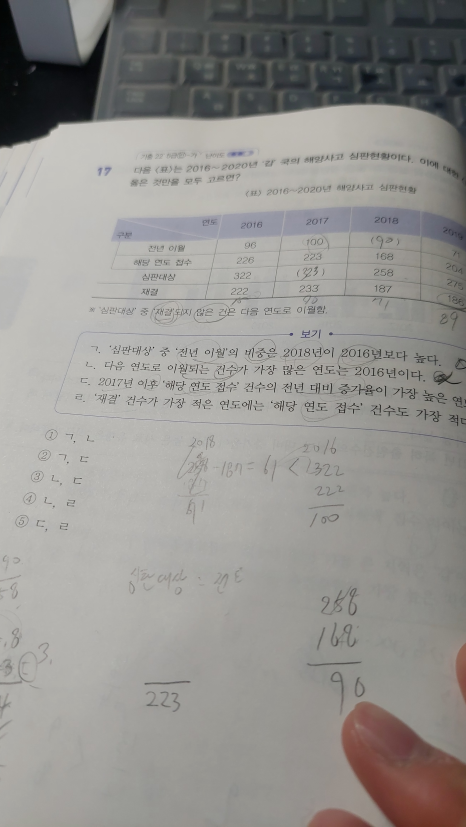 17 다음 <표>는 2016~2020년 '갑' 국의 해양사고 심판현황이다. 이에 대한
옳은 것만을 모두 고르면?
<표> 2016~2020년 해양사고 심판현황
구분 연도 2016 2017 2018
전년 이월 96 (100) (90)
해당 연도 접수 226 223 168
심판대상 322 (323) 258
재결 222 233 187
※ '심판대상' 중 '재결'되지 않은 건은 다음 연도로 이월함.
89
• 보기 •
ㄱ. '심판대상' 중 '전년 이월'의 비중은 2018년이 2016년보다 높다.
ㄴ. 다음 연도로 이월되는 건수가 가장 많은 연도는 2016년이다.
ㄷ. 2017년 이후 '해당 연도 접수' 건수의 전년 대비 증가율이 가장 높은 연
ㄹ. '재결' 건수가 가장 적은 연도에는 '해당 연도 접수' 건수도 가장 적다
① ㄱ, ㄴ
② ㄱ, ㄷ
③ ㄴ, ㄷ
④ ㄴ, ㄹ
⑤ ㄷ, ㄹ
2018 2016
-187 = 61 < 322
222
100
심판대상
258
168
90
223